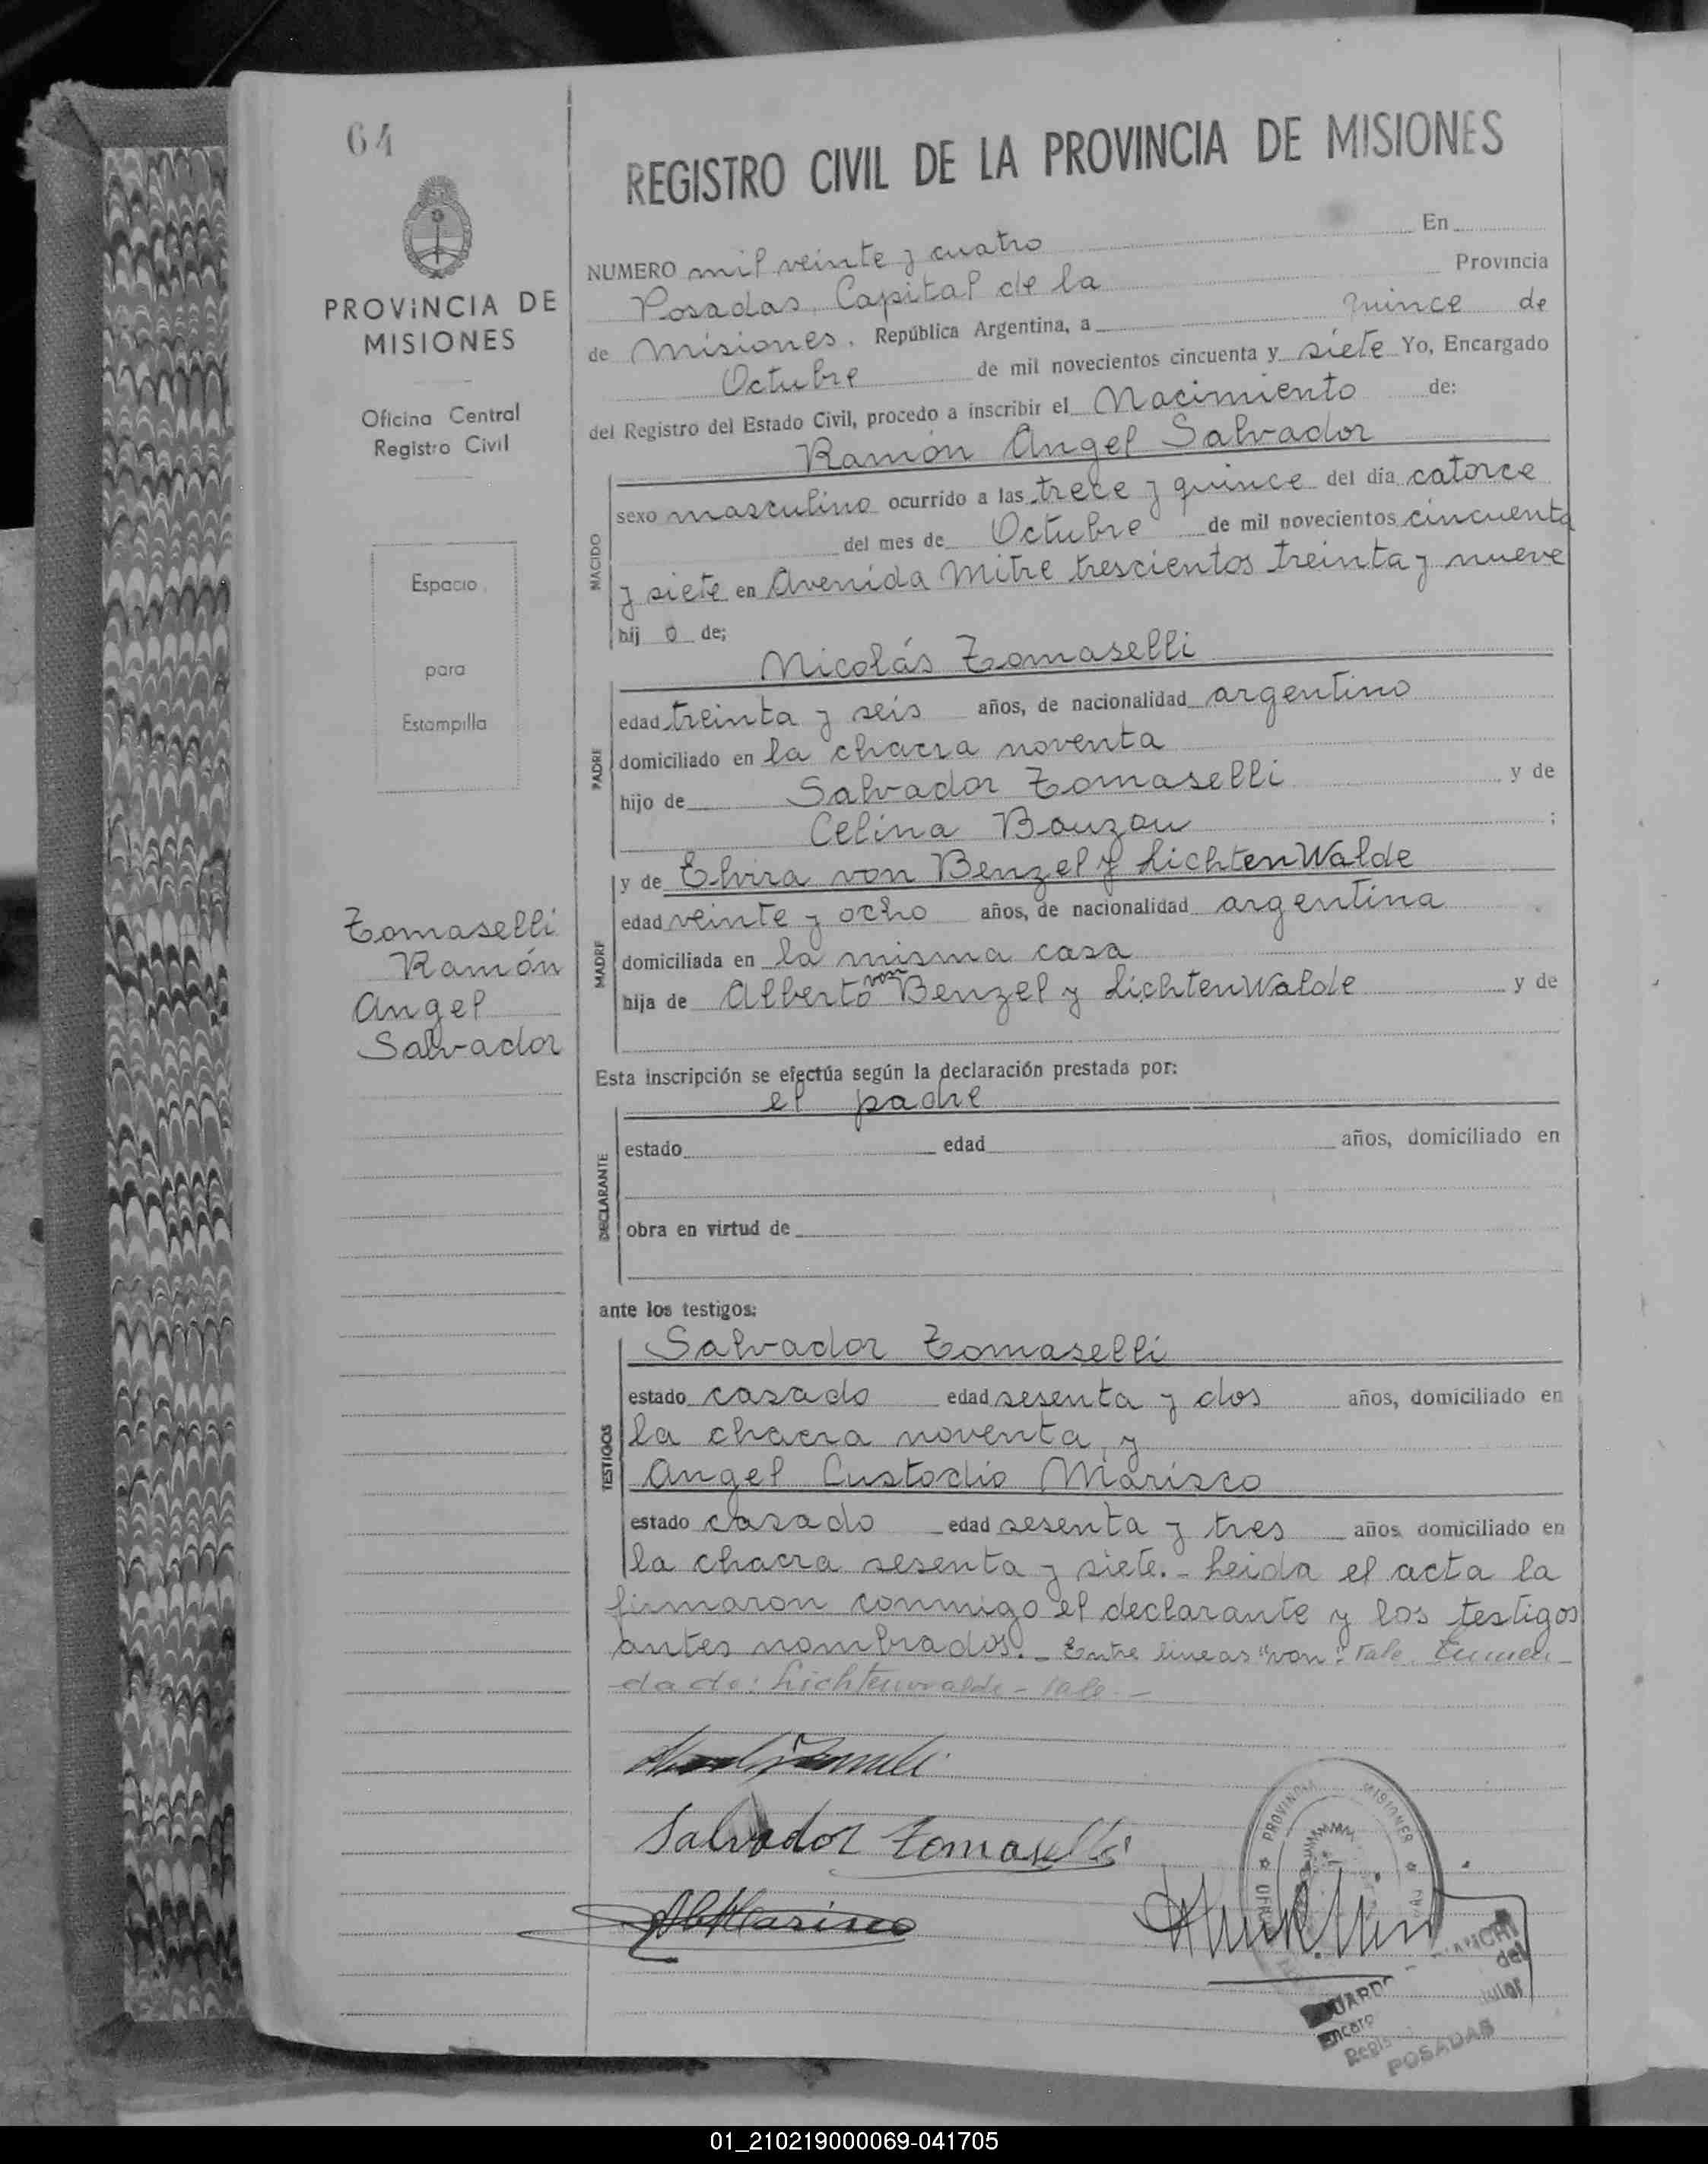 64
PROVINCIA DE
MISIONES
Oficina Central
Registro Civil
Espacio
para
Estampilla
Tomaselli
Ramón
Angel
Salvador
REGISTRO CIVIL DE LA PROVINCIA DE MISIONES
NUMERO mil veinte y cuatro En
Posadas, Capital de la Provincia
de Misiones. República Argentina, a quince de
Octubre de mil novecientos cincuenta y siete Yo, Encargado
del Registro del Estado Civil, procedo a inscribir el Nacimiento de:
Ramón Angel Salvador
NACIDO
sexo masculino ocurrido a las trece y quince del día catorce
del mes de Octubre de mil novecientos cincuenta
y siete en Avenida Mitre trescientos treinta y nueve
hij o de;
Nicolás Tomaselli
PADRE
edad treinta y seis años, de nacionalidad argentino
domiciliado en la chacra noventa
hijo de Salvador Tomaselli y de
Celina Bouzou ;
y de Elvira von Benzel y LichtenWalde
MADRE
edad veinte y ocho años, de nacionalidad argentina
domiciliada en la misma casa
hija de Alberto von Benzel y LichtenWalde y de
Esta inscripción se efectúa según la declaración prestada por:
el padre
DECLARANTE
estado edad años, domiciliado en
obra en virtud de
ante los testigos:
Salvador Tomaselli
TESTIGOS
estado casado edad sesenta y dos años, domiciliado en
la chacra noventa, y
Angel Custodio Marisco
estado casado edad sesenta y tres años, domiciliado en
la chacra sesenta y siete.- Leida el acta la
firmaron conmigo el declarante y los testigos
antes nombrados.- Entre lineas "von": Vale. Enmen-
dado: Lichtenwalde - Vale.-
Salvador Tomaselli
PROVINCIA MISIONES
POSADAS
01_210219000069-041705